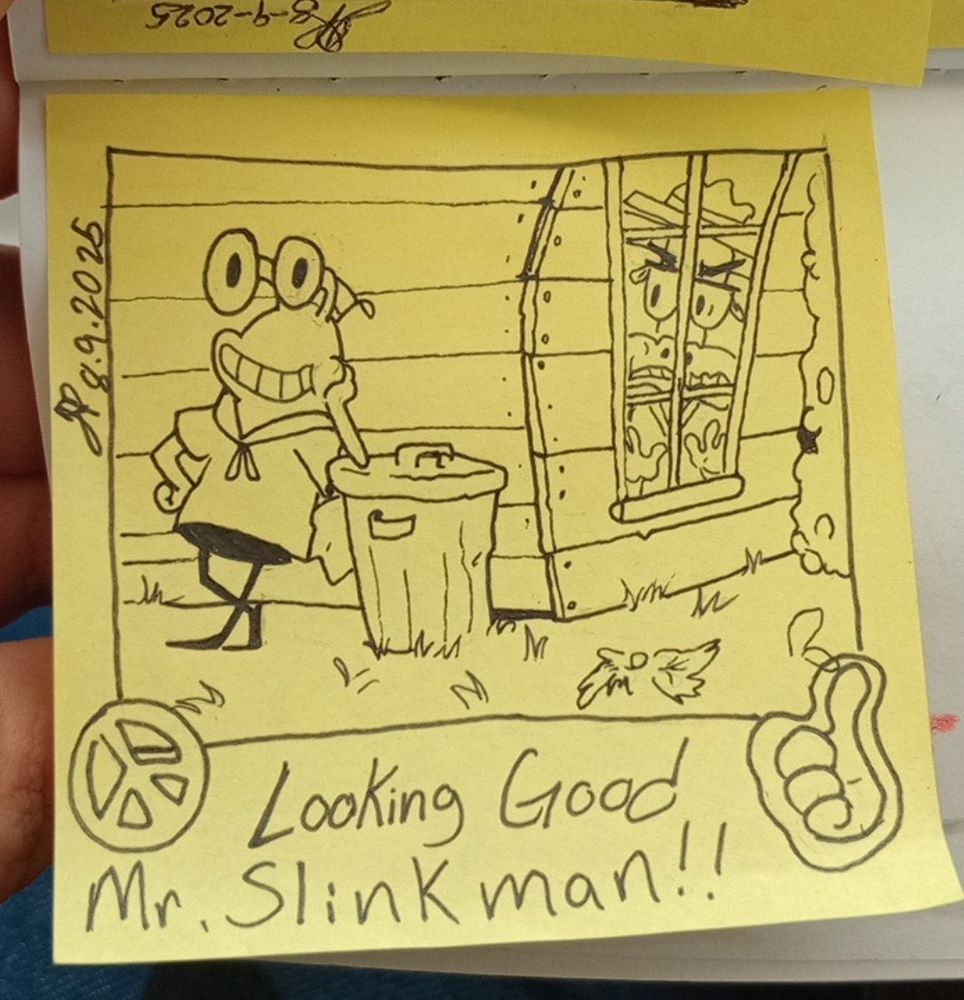 8-9-2025
JP 8.9.2025
Looking Good
Mr. Slinkman!!